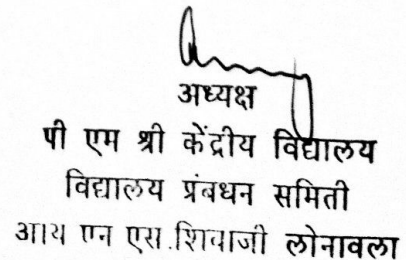 अध्यक्ष
पी एम श्री केंद्रीय विद्यालय
विद्यालय प्रंबधन समिती
आय एन एस.शिवाजी लोनावला